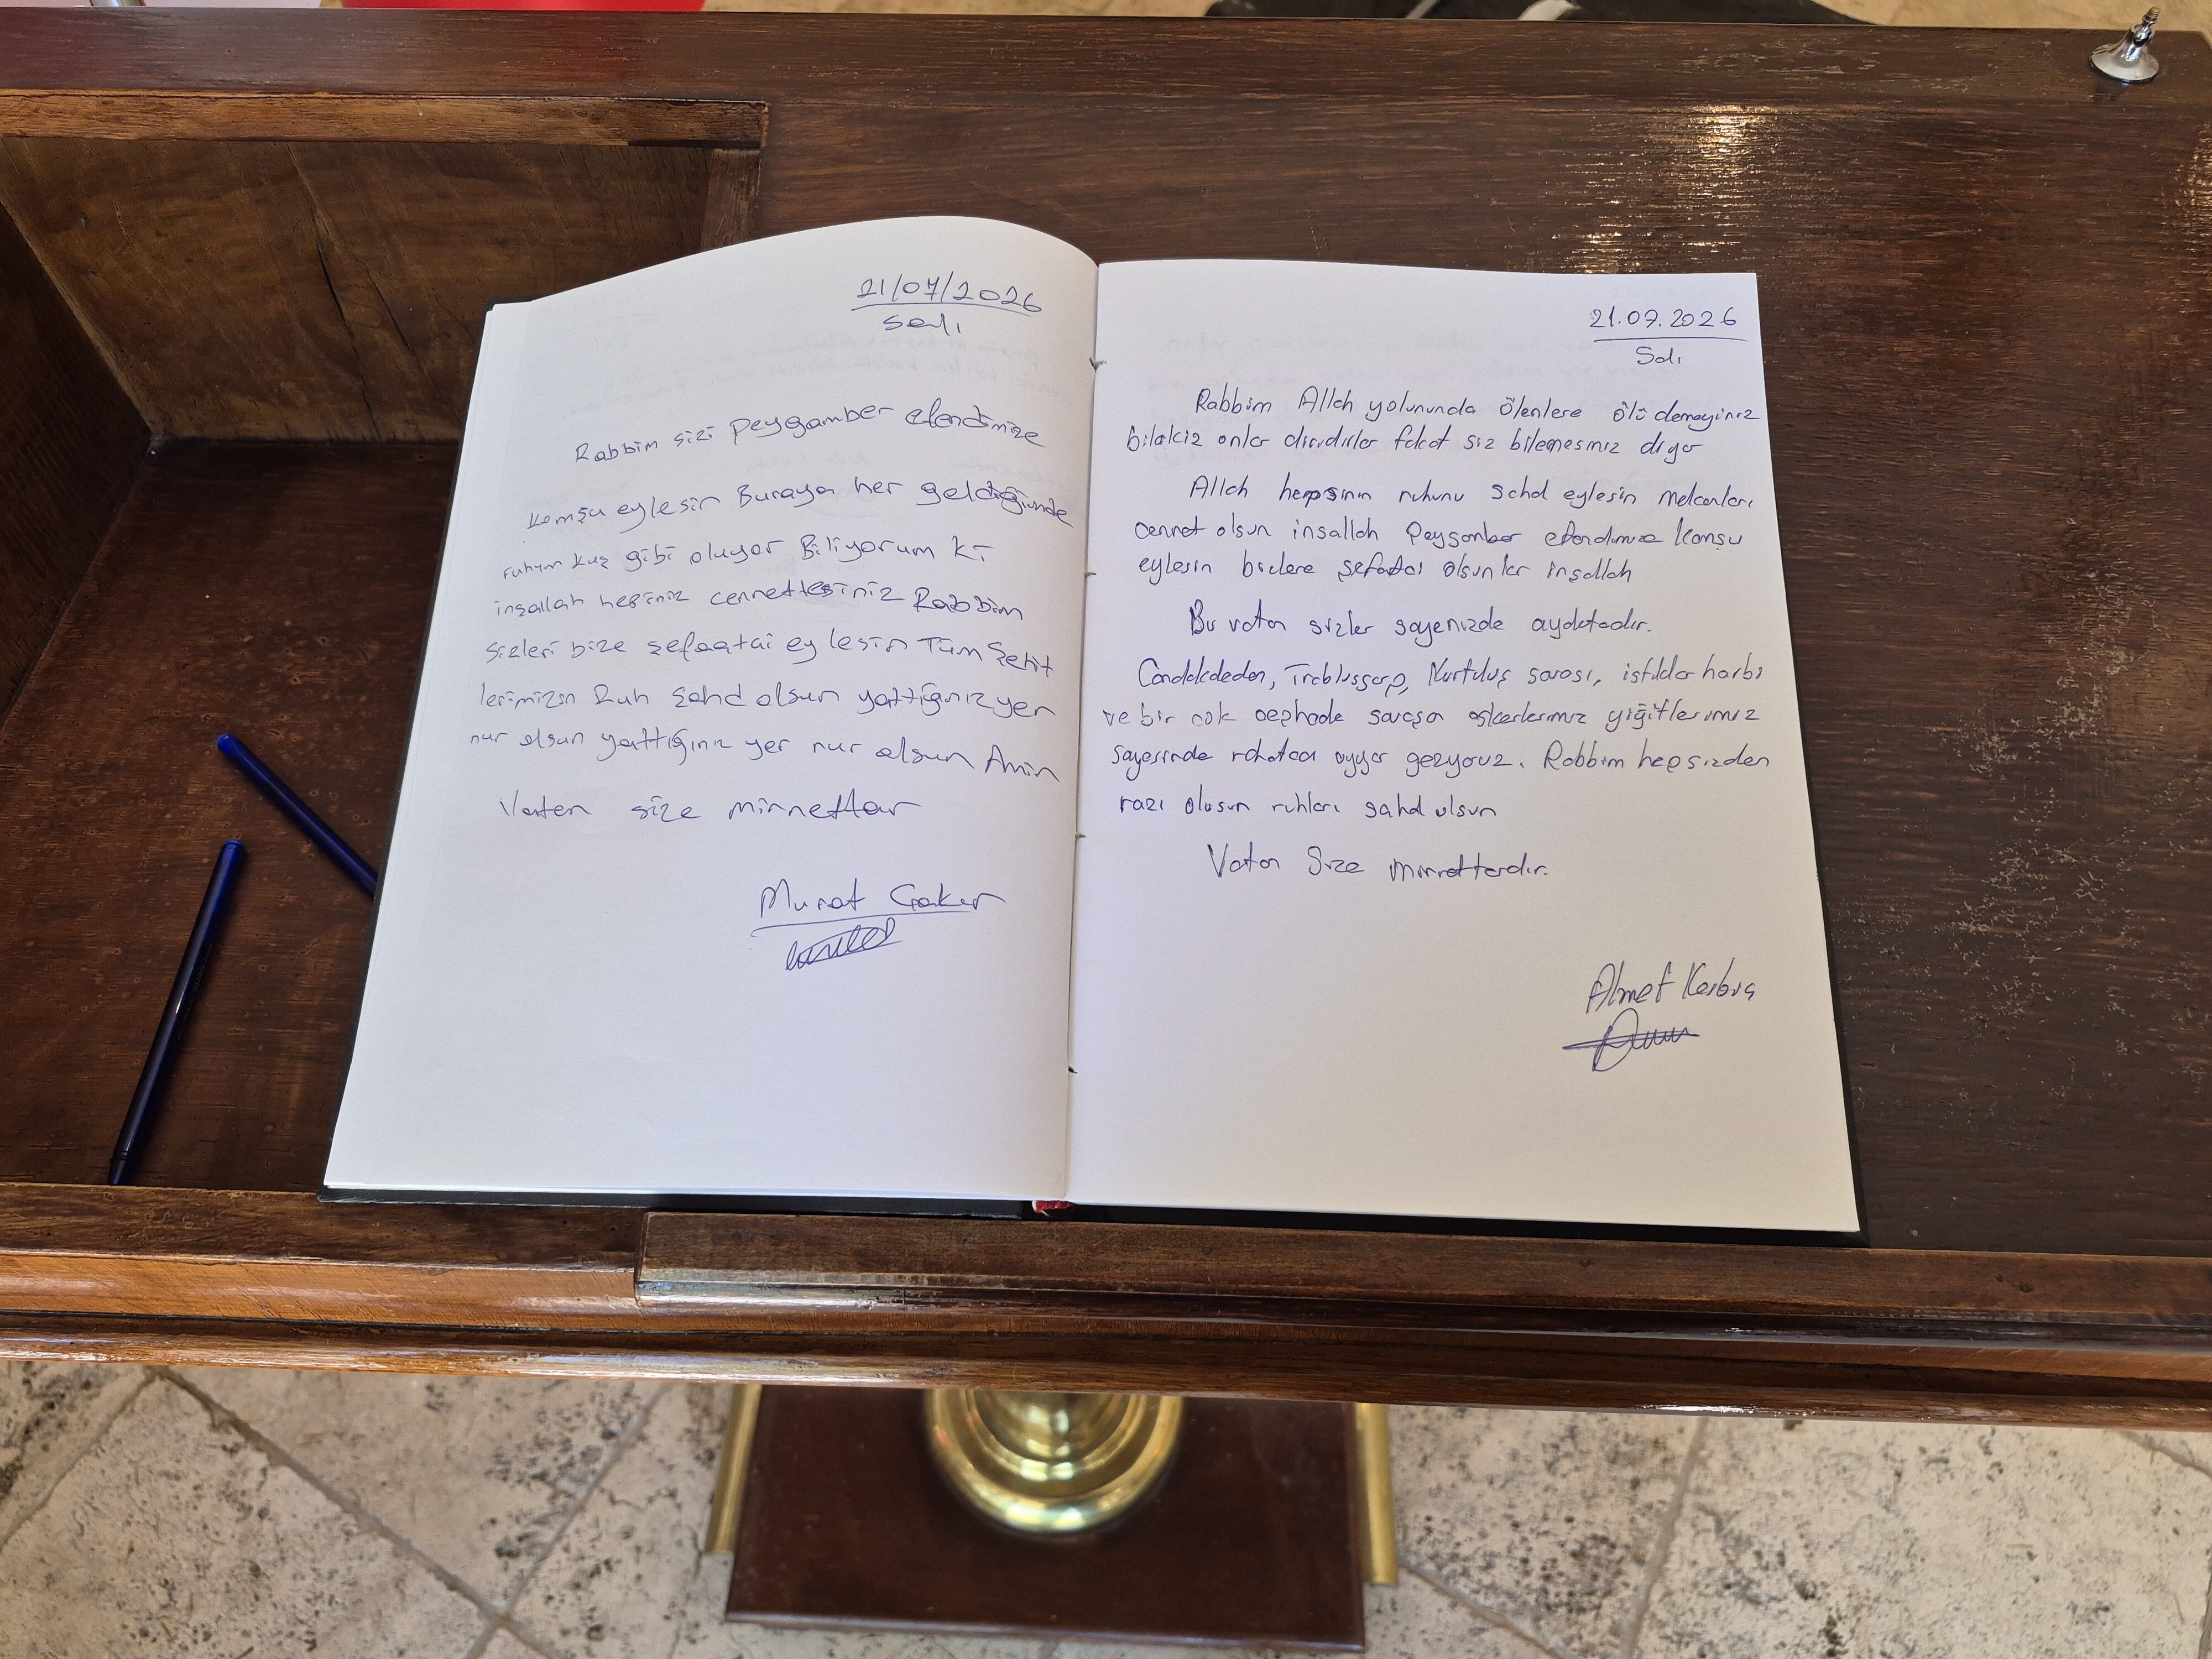 21/07/2026
Salı
Rabbim sizi Peygamber efendimize
komşu eylesin Buraya her geldiğimde
ruhum kuş gibi oluyor Biliyorum ki
inşallah hepiniz cennettesiniz Rabbim
sizleri bize şefaatçi eylesin Tüm Şehit
lerimizin Ruh şahd olsun yattığınız yer
nur olsun yattığınız yer nur olsun Amin
Vatan size minnettar
Murat
21.07.2026
Salı
Rabbim Allah yolununda ölenlere ölü demeyiniz
bilakiz onlar diridirler fakat siz bilemesiniz diyor
Allah hepsinin ruhunu şahd eylesin mekanları
cennet olsun inşallah Peygamber efendimize komşu
eylesin bizlere şefaatci olsunlar inşallah
Bu vatan sizler sayenizde ayaktadır.
Trablusgarp, Kurtuluş savası, istiklar harbi
ve bir cok cephade savaşan askerlerimiz yiğitlerimiz
sayesinde rahatca geziyouz. Rabbim hepsizden
razı olusun ruhları şahd olsun
Vatan Size minnettardır.
Ahmet